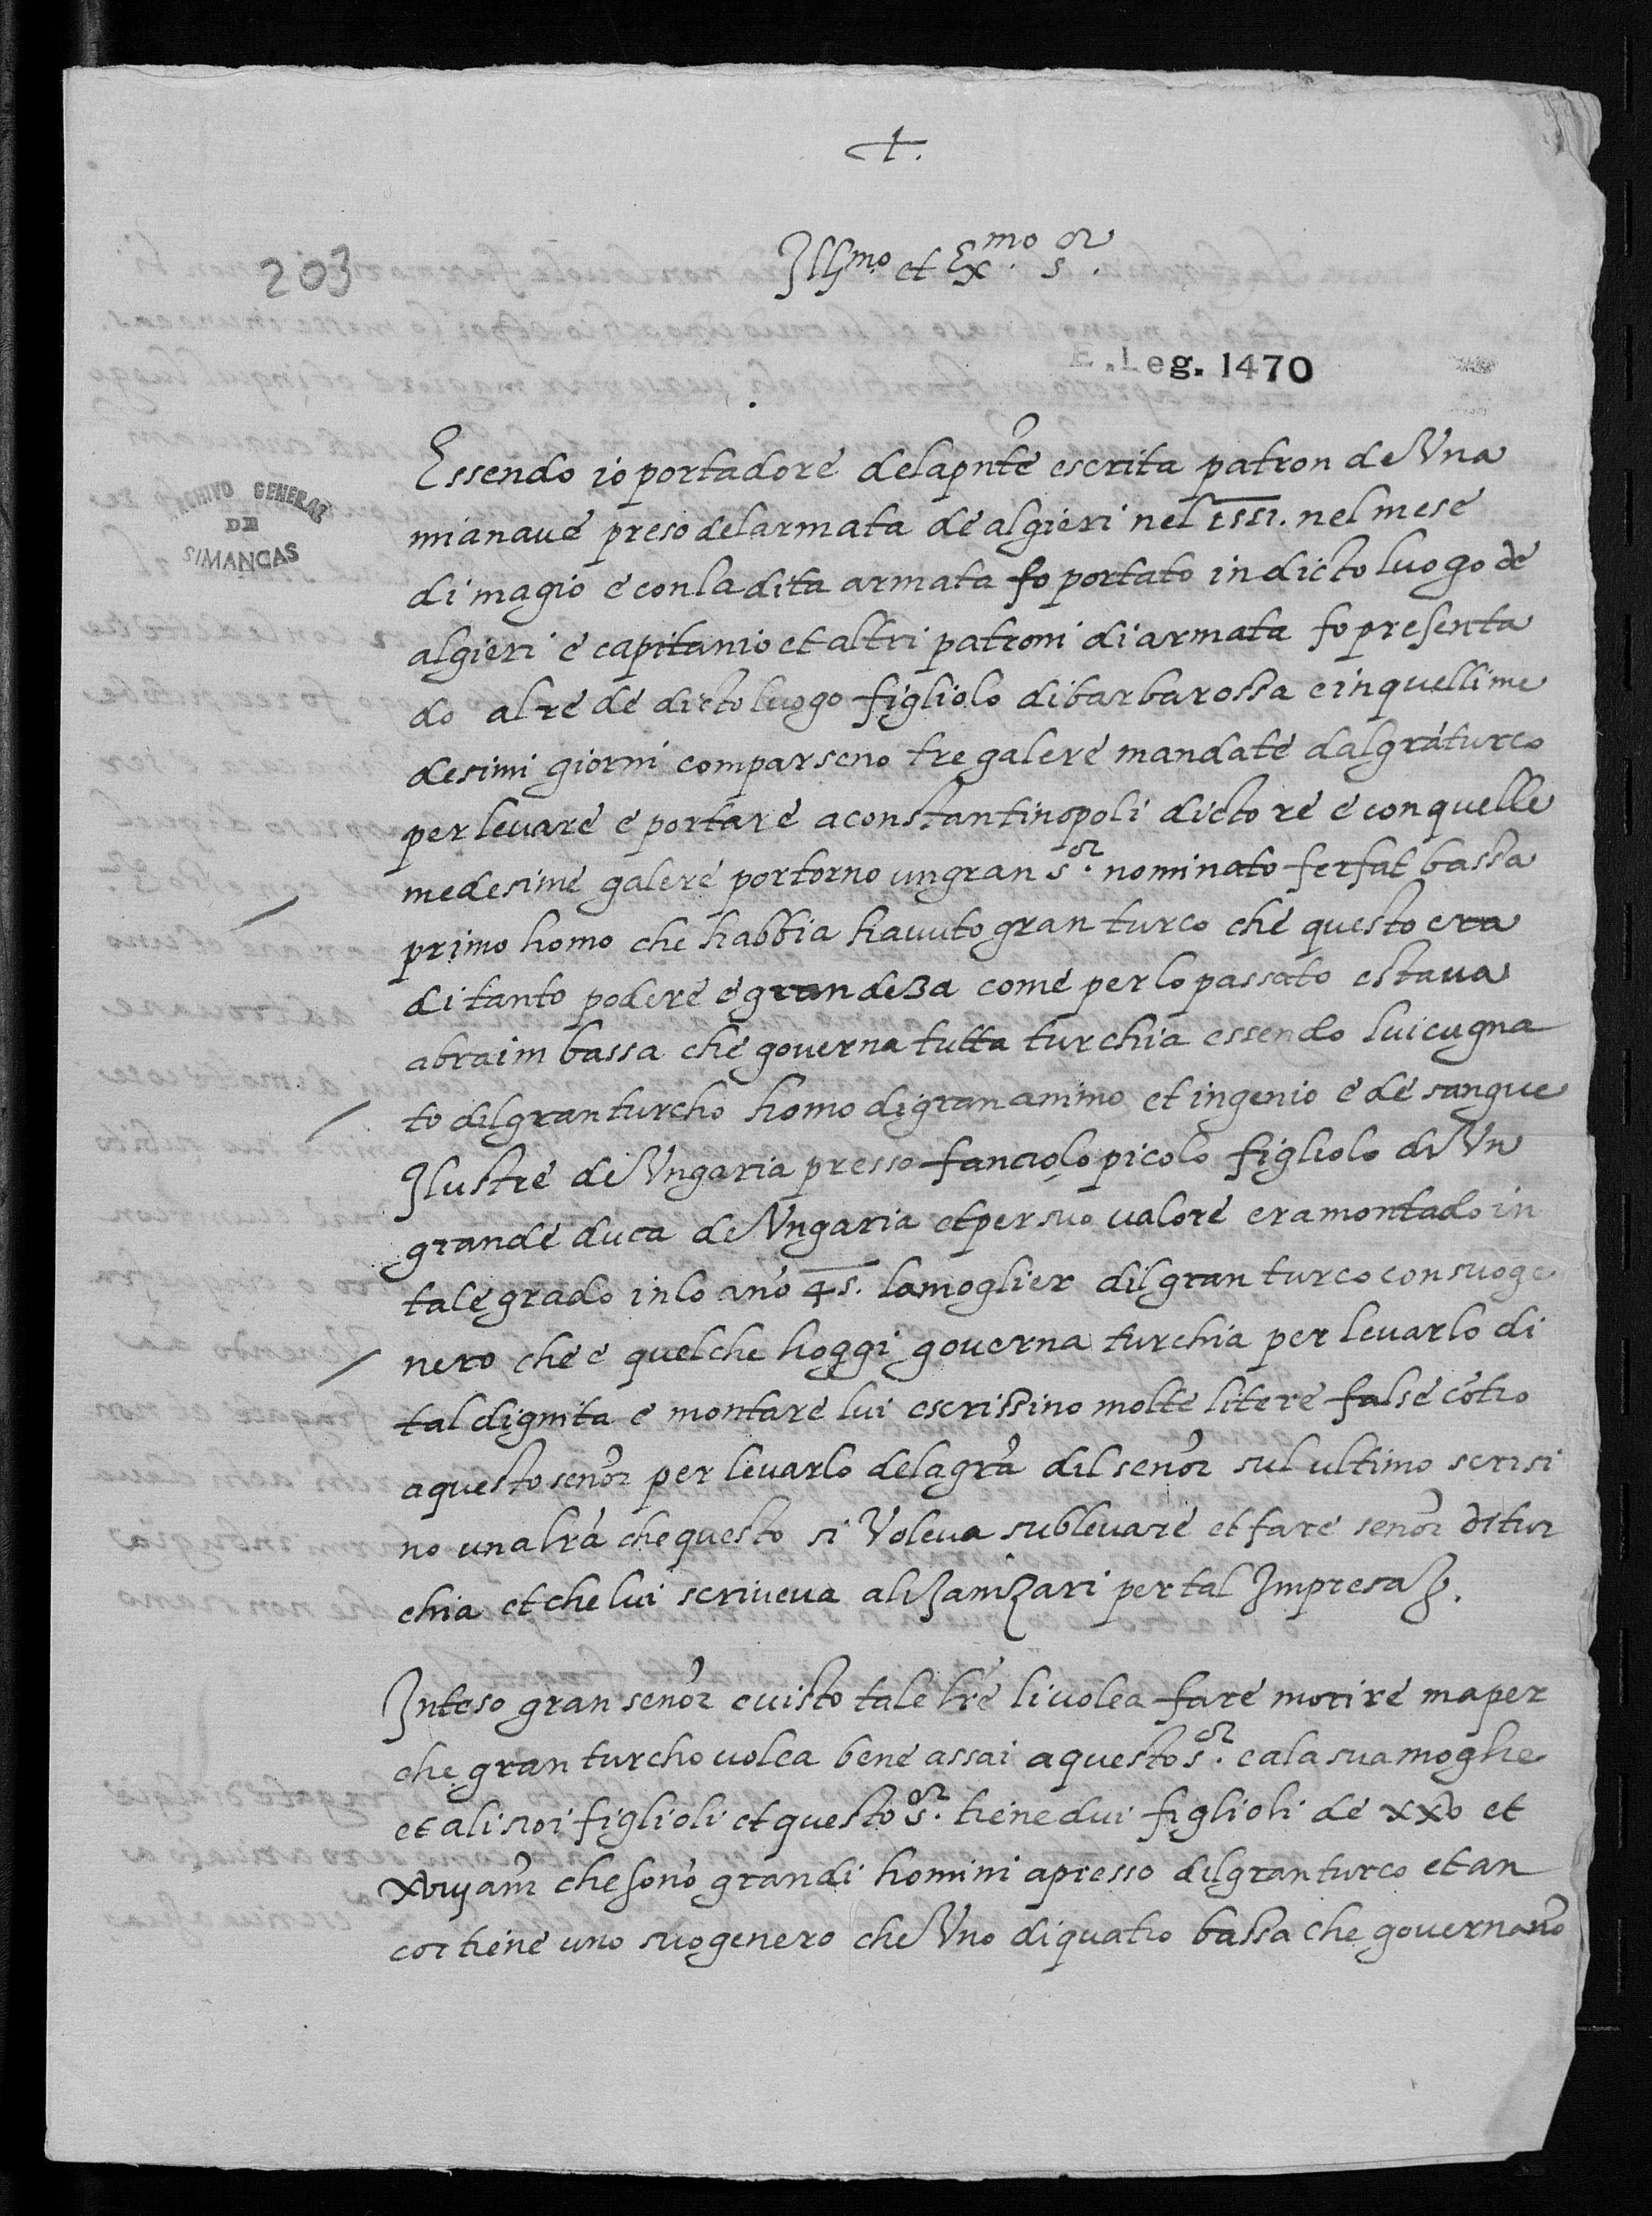 +.
Illmo. et Exmo. sor.
203
E. Leg. 1470
ARCHIVO GENERAL
DE
SIMANCAS
Essendo io portadore dela pnte escrita patron de Vna
mia naue preso del armata de algieri nel 1551. nel mese
di magio e con la dita armata fo portato in dicto luogo de
algieri e capitanio et altri patroni di armata fo presenta
do al re de dicto luogo figliolo di barbarossa e in quelli me
desimi giorni comparseno tre galere mandate dal grā turco
per leuare e portare a constantinopoli dicto re e con quelle
medesime galere portorno un gran sor. nominato ferfat bassa
primo homo che habbia hauuto gran turco che questo era
di tanto podere e grandeza come per lo passato estaua
abraim bassa che governa tutta turchia essendo lui cugna
to dil gran turcho homo di gran animo et ingenio e de sangue
Ilustre de Vngaria presso fanciolo picolo figliolo di Vn
grande duca de Vngaria et per suo ualore era montado in
tale grado in lo año 45. la moglier dil gran turco con suo ge
nero che e quel che hoggi governa turchia per leuarlo di
tal dignita e montare lui escrissino molte litere false cōtro
a questo señor per leuarlo dela gra dil señor sul ultimo scrisi
no una lrā che questo si Voleua subleuare et fare señor di tur
chia et che lui scriueua ali Janizari per tal Impresa.
Inteso gran señor e uisto tale lre li uolea fare morire ma per
che gran turcho uolea bene assai a questo sor. e a la sua moglie
et ali suoi figlioli et questo sor. tiene dui figlioli de xxv et
xviij anni che sono grandi homini apresso dil gran turco et an
cor tiene uno suo genero che Vno di quatro bassa che governano